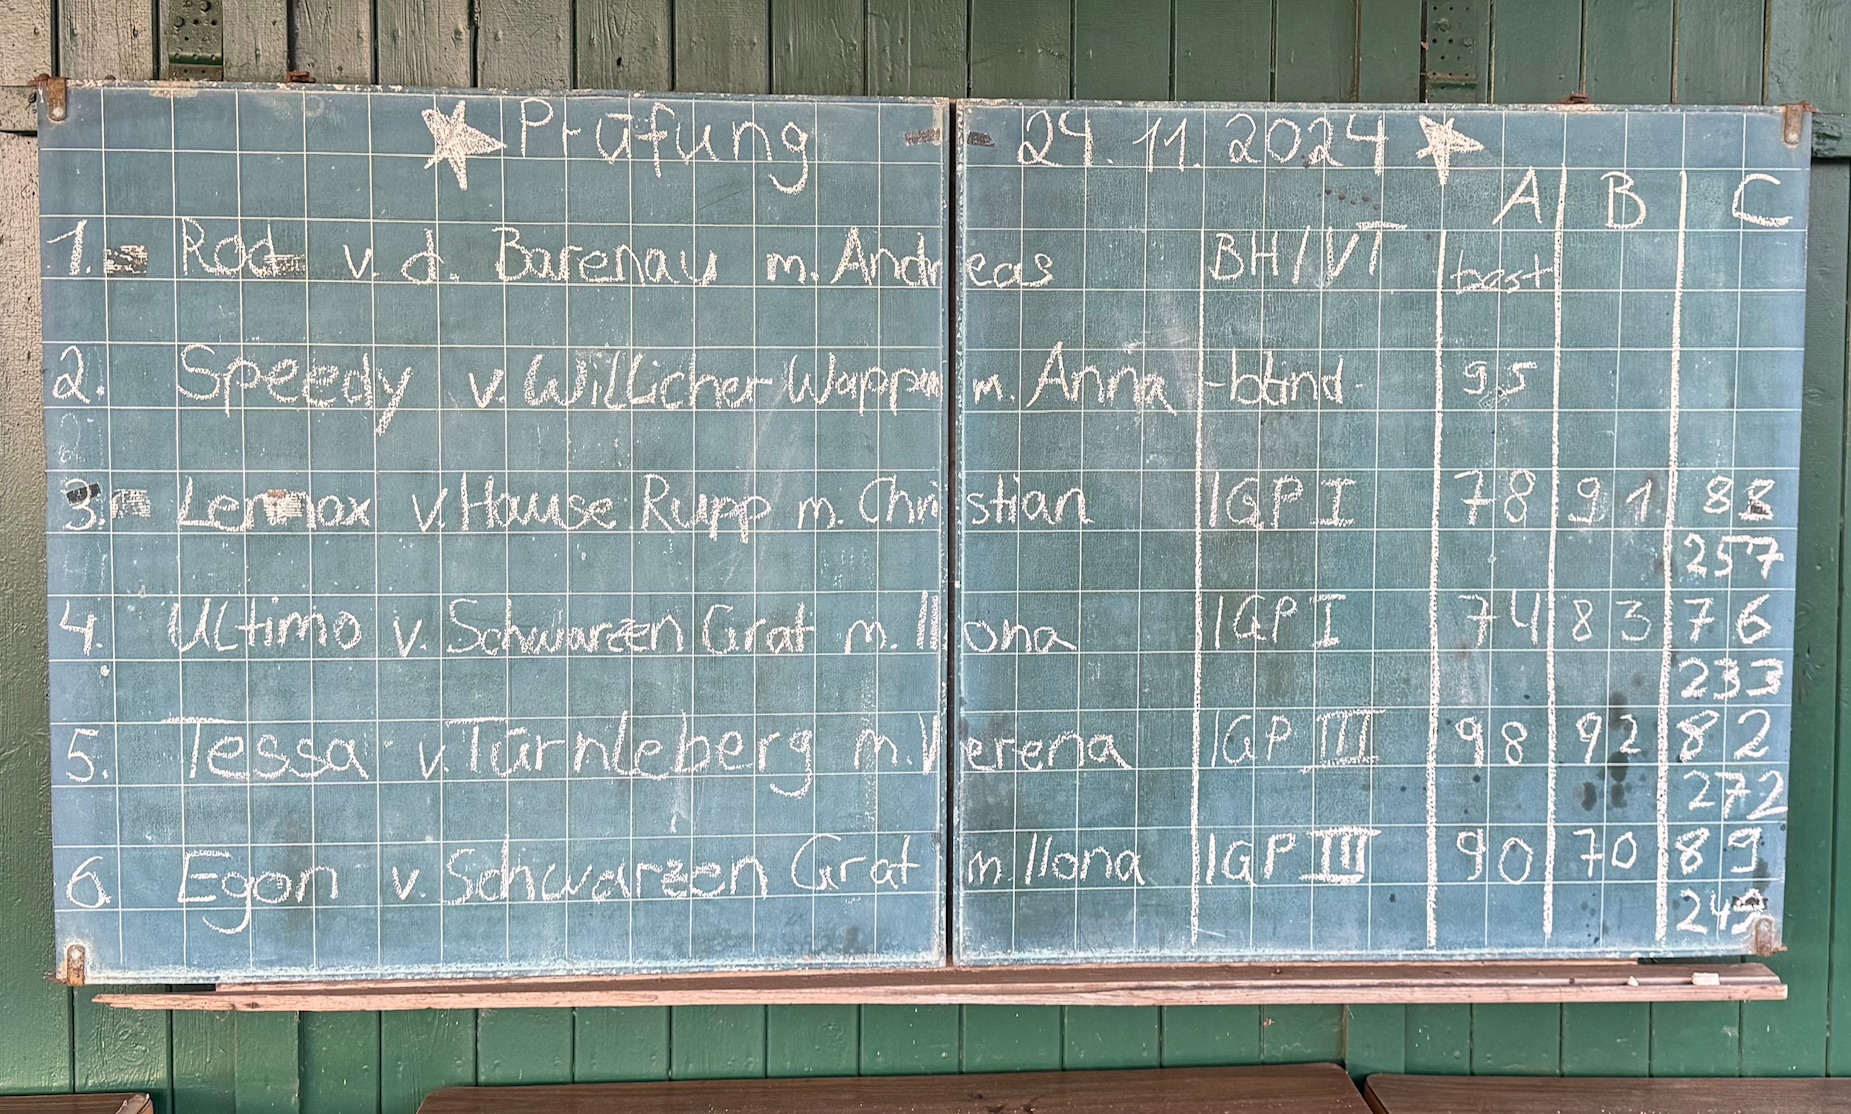 Prüfung - 24.11.2024
A B C
1. Rod v. d. Barenau m. Andreas BH/VT best
2. Speedy v. Willicher Wappen m. Anna -blind- 95
3. Lennox v. Hause Rupp m. Christian IGP I 78 91 88
257
4. Ultimo v. Schwarzen Grat m. Ilona IGP I 74 83 76
233
5. Tessa v. Türnleberg m. Verena IGP III 98 92 82
272
6. Egon v. Schwarzen Grat m. Ilona IGP III 90 70 89
249